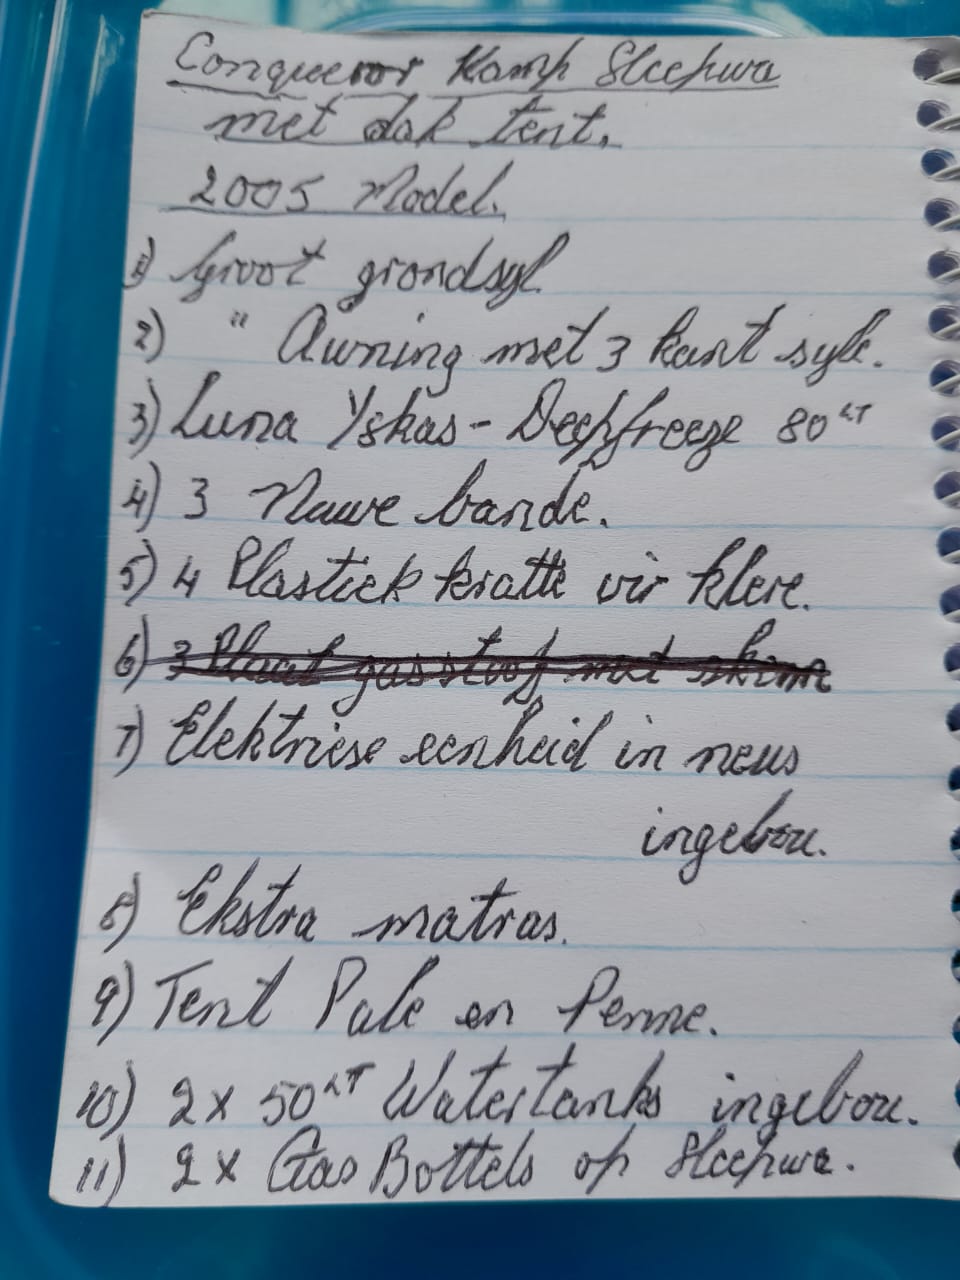 Conqueror Kamp Sleepwa
met dak tent.
2005 Model.
1) Groot grondsyl.
2) " Awning met 3 kant syle.
3) Luna Yskas - Deepfreeze 80 LT
4) 3 Nuwe bande.
5) 4 Plastiek kratte vir klere.
6) 3 Plaat gas stoof met skinn
7) Elektriese eenheid in neus
ingebou.
8) Ekstra matras.
9) Tent Pale en Penne.
10) 2 x 50 LT Watertanks ingebou.
11) 2 x Gas Bottels op Sleepwa.